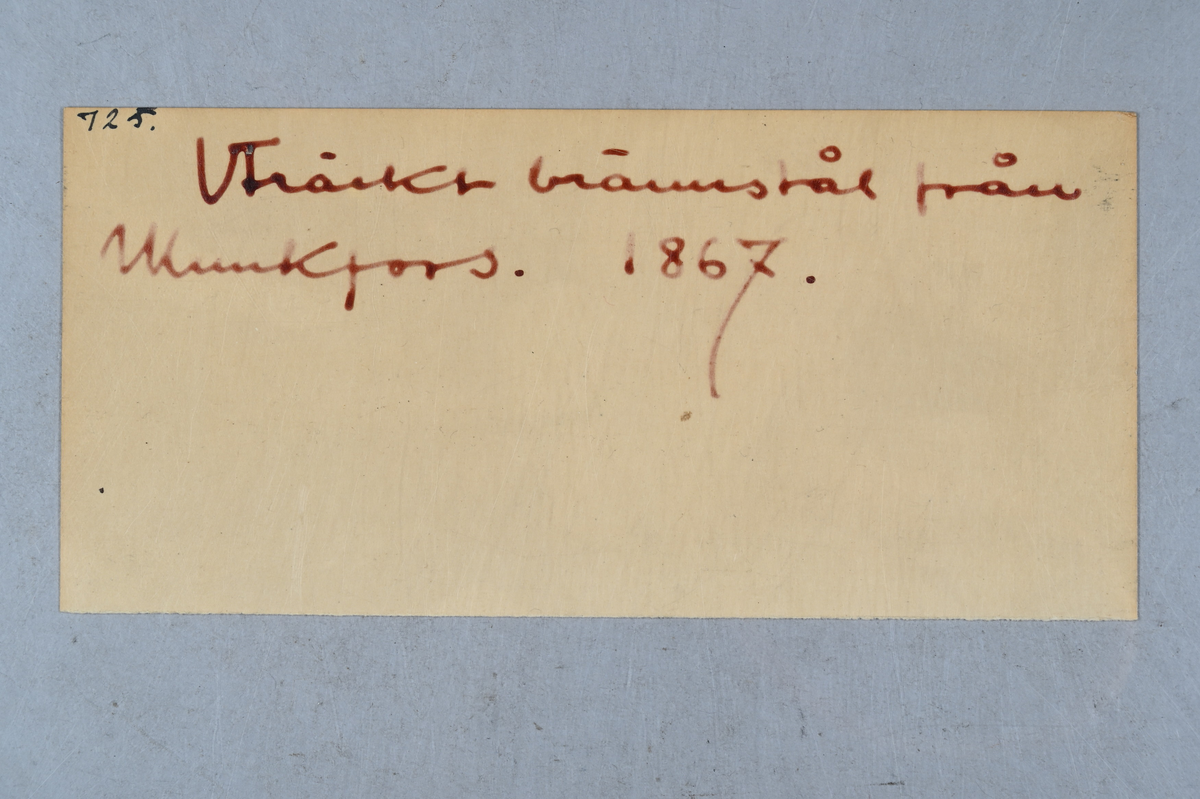 725.
Uträckt brännstål från
Munkfors. 1867.